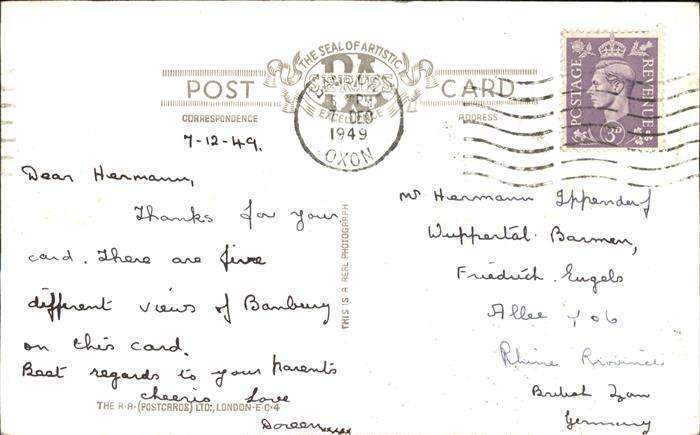 THE SEAL OF ARTISTIC
RA
EXCELLENCE
POST CARD
CORRESPONDENCE
ADDRESS
7 DEC
1949
OXON
POSTAGE REVENUE
3D
7-12-49.
Dear Hermann,
Thanks for your
card. There are five
different views of Banbury
on this card.
Best regards to your parents
cheerio Love
Doreen xxxxx
THIS IS A REAL PHOTOGRAPH
THE R.A. (POSTCARDS) LTD., LONDON-E-C-4
Mr Hermann Ippendorf
Wuppertal. Barmen,
Friedrich. Engels
Allee
Rhine Province
British Zone
Germany